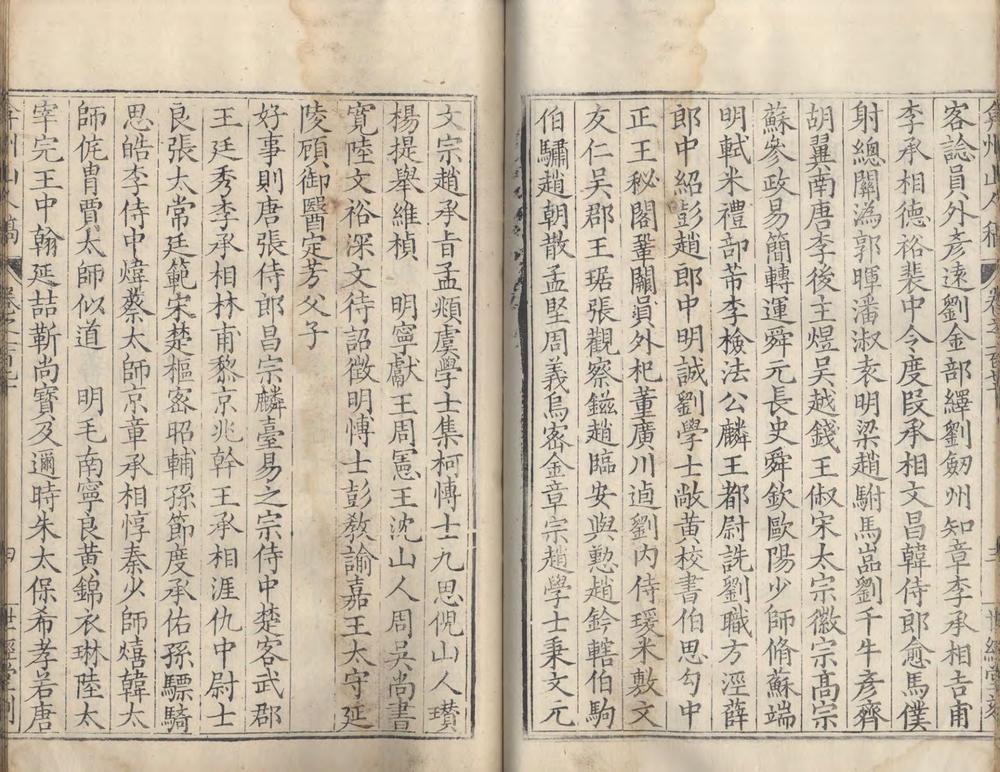 客諗員外彥遠劉金部繹劉劒州知章李承相吉甫
李承相德裕裴中令度段承相文昌韓侍郎愈馬僕
射總關潙郭暉潘淑袁明梁趙駙馬嵓劉千牛彥齊
胡翼南唐李後主煜吳越錢王俶宋太宗徽宗高宗
蘇參政易簡轉運舜元長史舜欽歐陽少師脩蘇端
明軾米禮部芾李檢法公麟王都尉詵劉職方涇薛
郎中紹彭趙郎中明誠劉學士敞黃校書伯思勾中
正王秘閣鞏關員外杞董廣川逌劉內侍瑗米敷文
友仁吳郡王琚張觀察鎡趙臨安與懃趙鈐轄伯駒
伯驌趙朝散孟堅周義烏密金章宗趙學士秉文元
文宗趙承旨孟頫虞學士集柯愽士九思倪山人瓚
楊提舉維楨　明寧獻王周憲王沈山人周吳尚書
寬陸文裕深文待詔徵明愽士彭敎諭嘉王太守延
陵顧御醫定芳父子
好事則唐張侍郎昌宗麟臺易之宗侍中楚客武郡
王廷秀李承相林甫黎京兆幹王承相涯仇中尉士
良張太常廷範宋楚樞密昭輔孫節度承佑孫驃騎
思皓李侍中煒蔡太師京童承相惇秦少師熺韓太
師侂冑賈太師似道　明毛南寧良黃錦衣琳陸太
宰完王中翰延喆靳尚寶及邇時朱太保希孝若唐